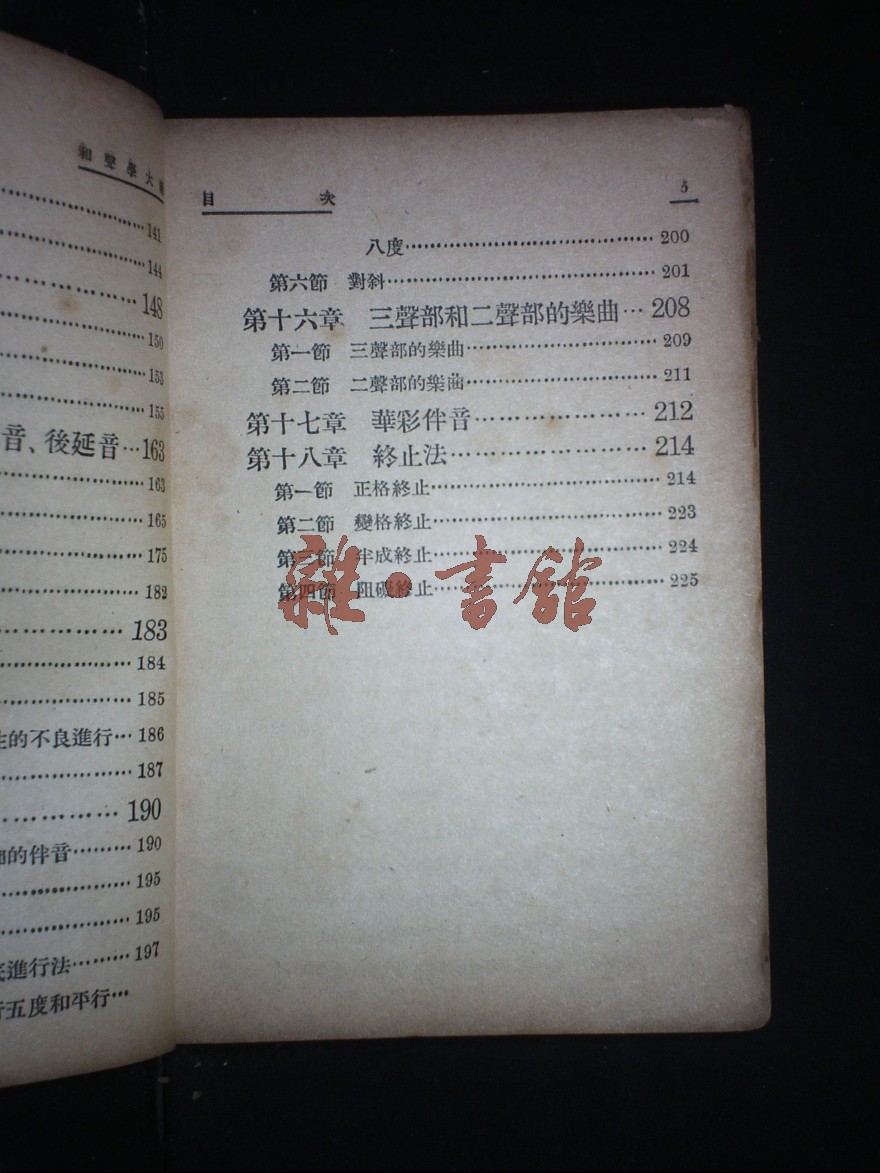 和聲學大
141
144
148
150
153
155
音、後延音…163
163
165
175
182
183
184
185
的不良進行…186
187
190
的伴音………190
195
195
進行法………197
行五度和平行…
目 次 5
八度……………………………… 200
第六節 對斜……………………………… 201
第十六章 三聲部和二聲部的樂曲… 208
第一節 三聲部的樂曲…………………… 209
第二節 二聲部的樂曲…………………… 211
第十七章 華彩伴音…………………… 212
第十八章 終止法……………………… 214
第一節 正格終止……………………… 214
第二節 變格終止……………………… 223
第三節 半成終止……………………… 224
第四節 阻礙終止……………………… 225
雜·書館